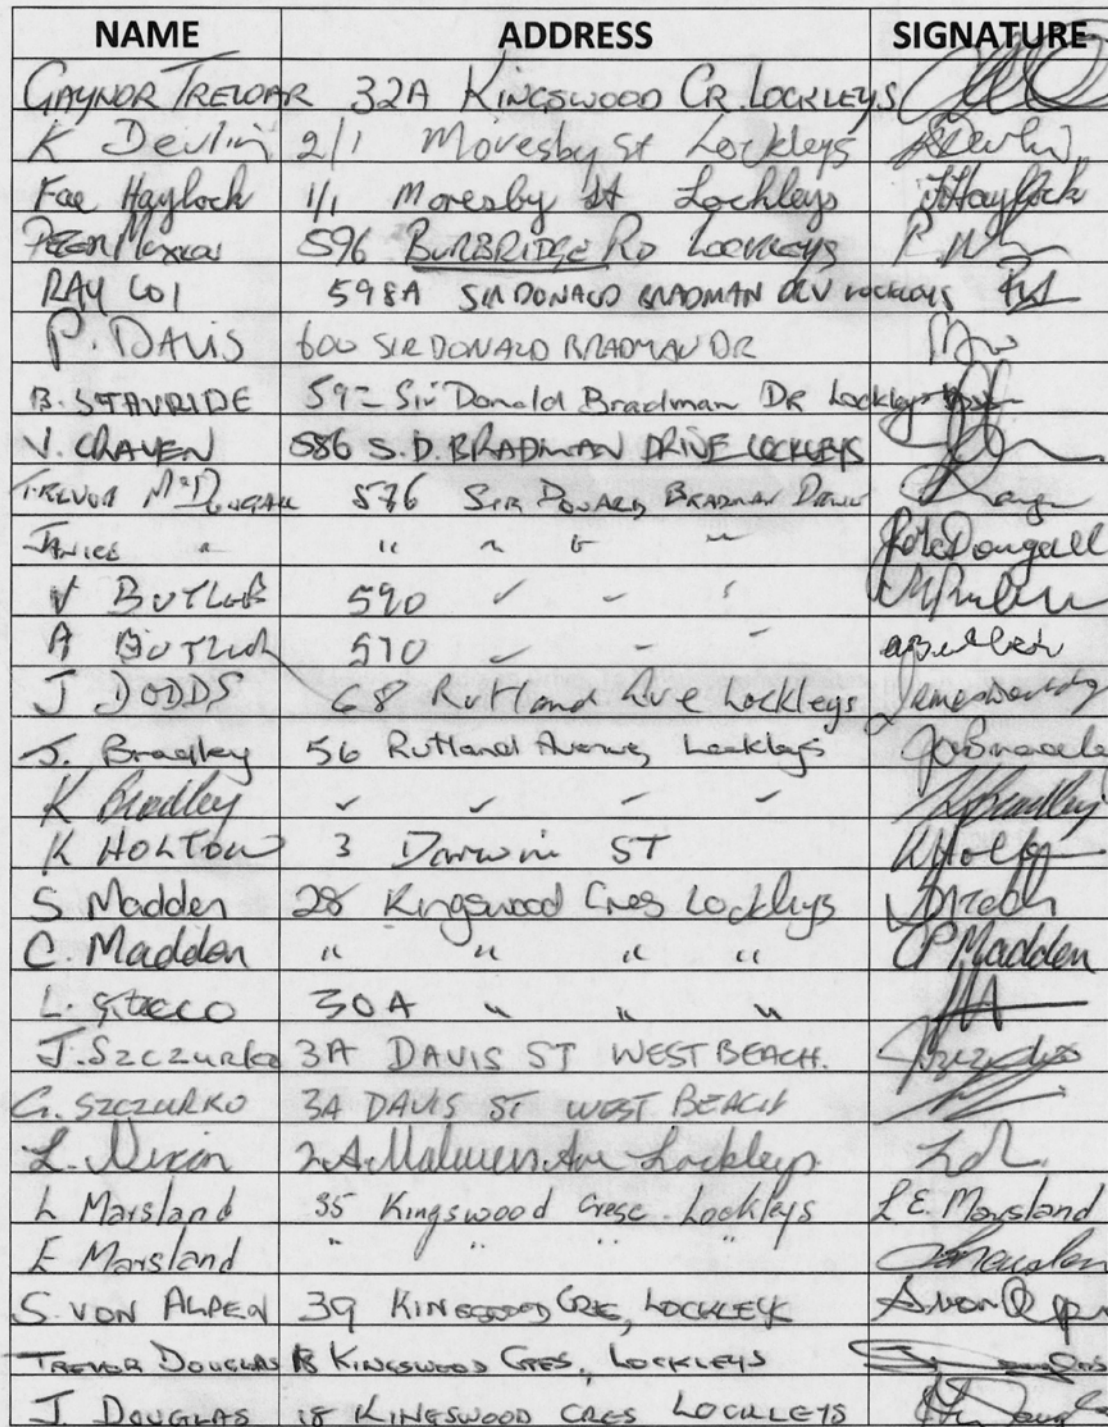 NAME ADDRESS SIGNATURE
GAYNOR TRELOAR 32A KINGSWOOD CR. LOCKLEYS
K Devlin 2/1 Moresby St Lockleys
Fae Haylock 1/1 Moresby St Lockleys F Haylock
PETER 596 BURBRIDGE RD LOCKLEYS
RAY LOI 598A SIR DONALD BRADMAN DRV LOCKLEYS
P. DAVIS 600 SIR DONALD BRADMAN DR
B. STAVRIDE 592 Sir Donald Bradman DR Lockleys
V. CRAVEN 586 S.D. BRADMAN DRIVE LOCKLEYS
TREVOR McDOUGALL 576 SIR DONALD BRADMAN DRIVE
JANICE " " " " " McDougall
V BUTLER 590 " " "
A BUTLER 590 " " "
J DODDS 68 Rutland Ave Lockleys
J. Bradley 56 Rutland Avenue, Lockleys
K Bradley " " " " K Bradley
K HOLTON 3 Darwin ST
S Madden 28 Kingswood Cres Lockleys
C. Madden " " " " CP Madden
L. 30A " " "
J. Szczurko 3A DAVIS ST WEST BEACH.
G. SZCZURKO 3A DAVIS ST WEST BEACH
L. Nixon 2A Ave Lockleys
L Marsland 35 Kingswood Cresc. Lockleys L E. Marsland
E Marsland " " " "
S. VON ALPEN 39 KINGSWOOD CRES, LOCKLEYS
TREVOR DOUGLAS 18 KINGSWOOD CRES, LOCKLEYS
J. DOUGLAS 18 KINGSWOOD CRES LOCKLEYS